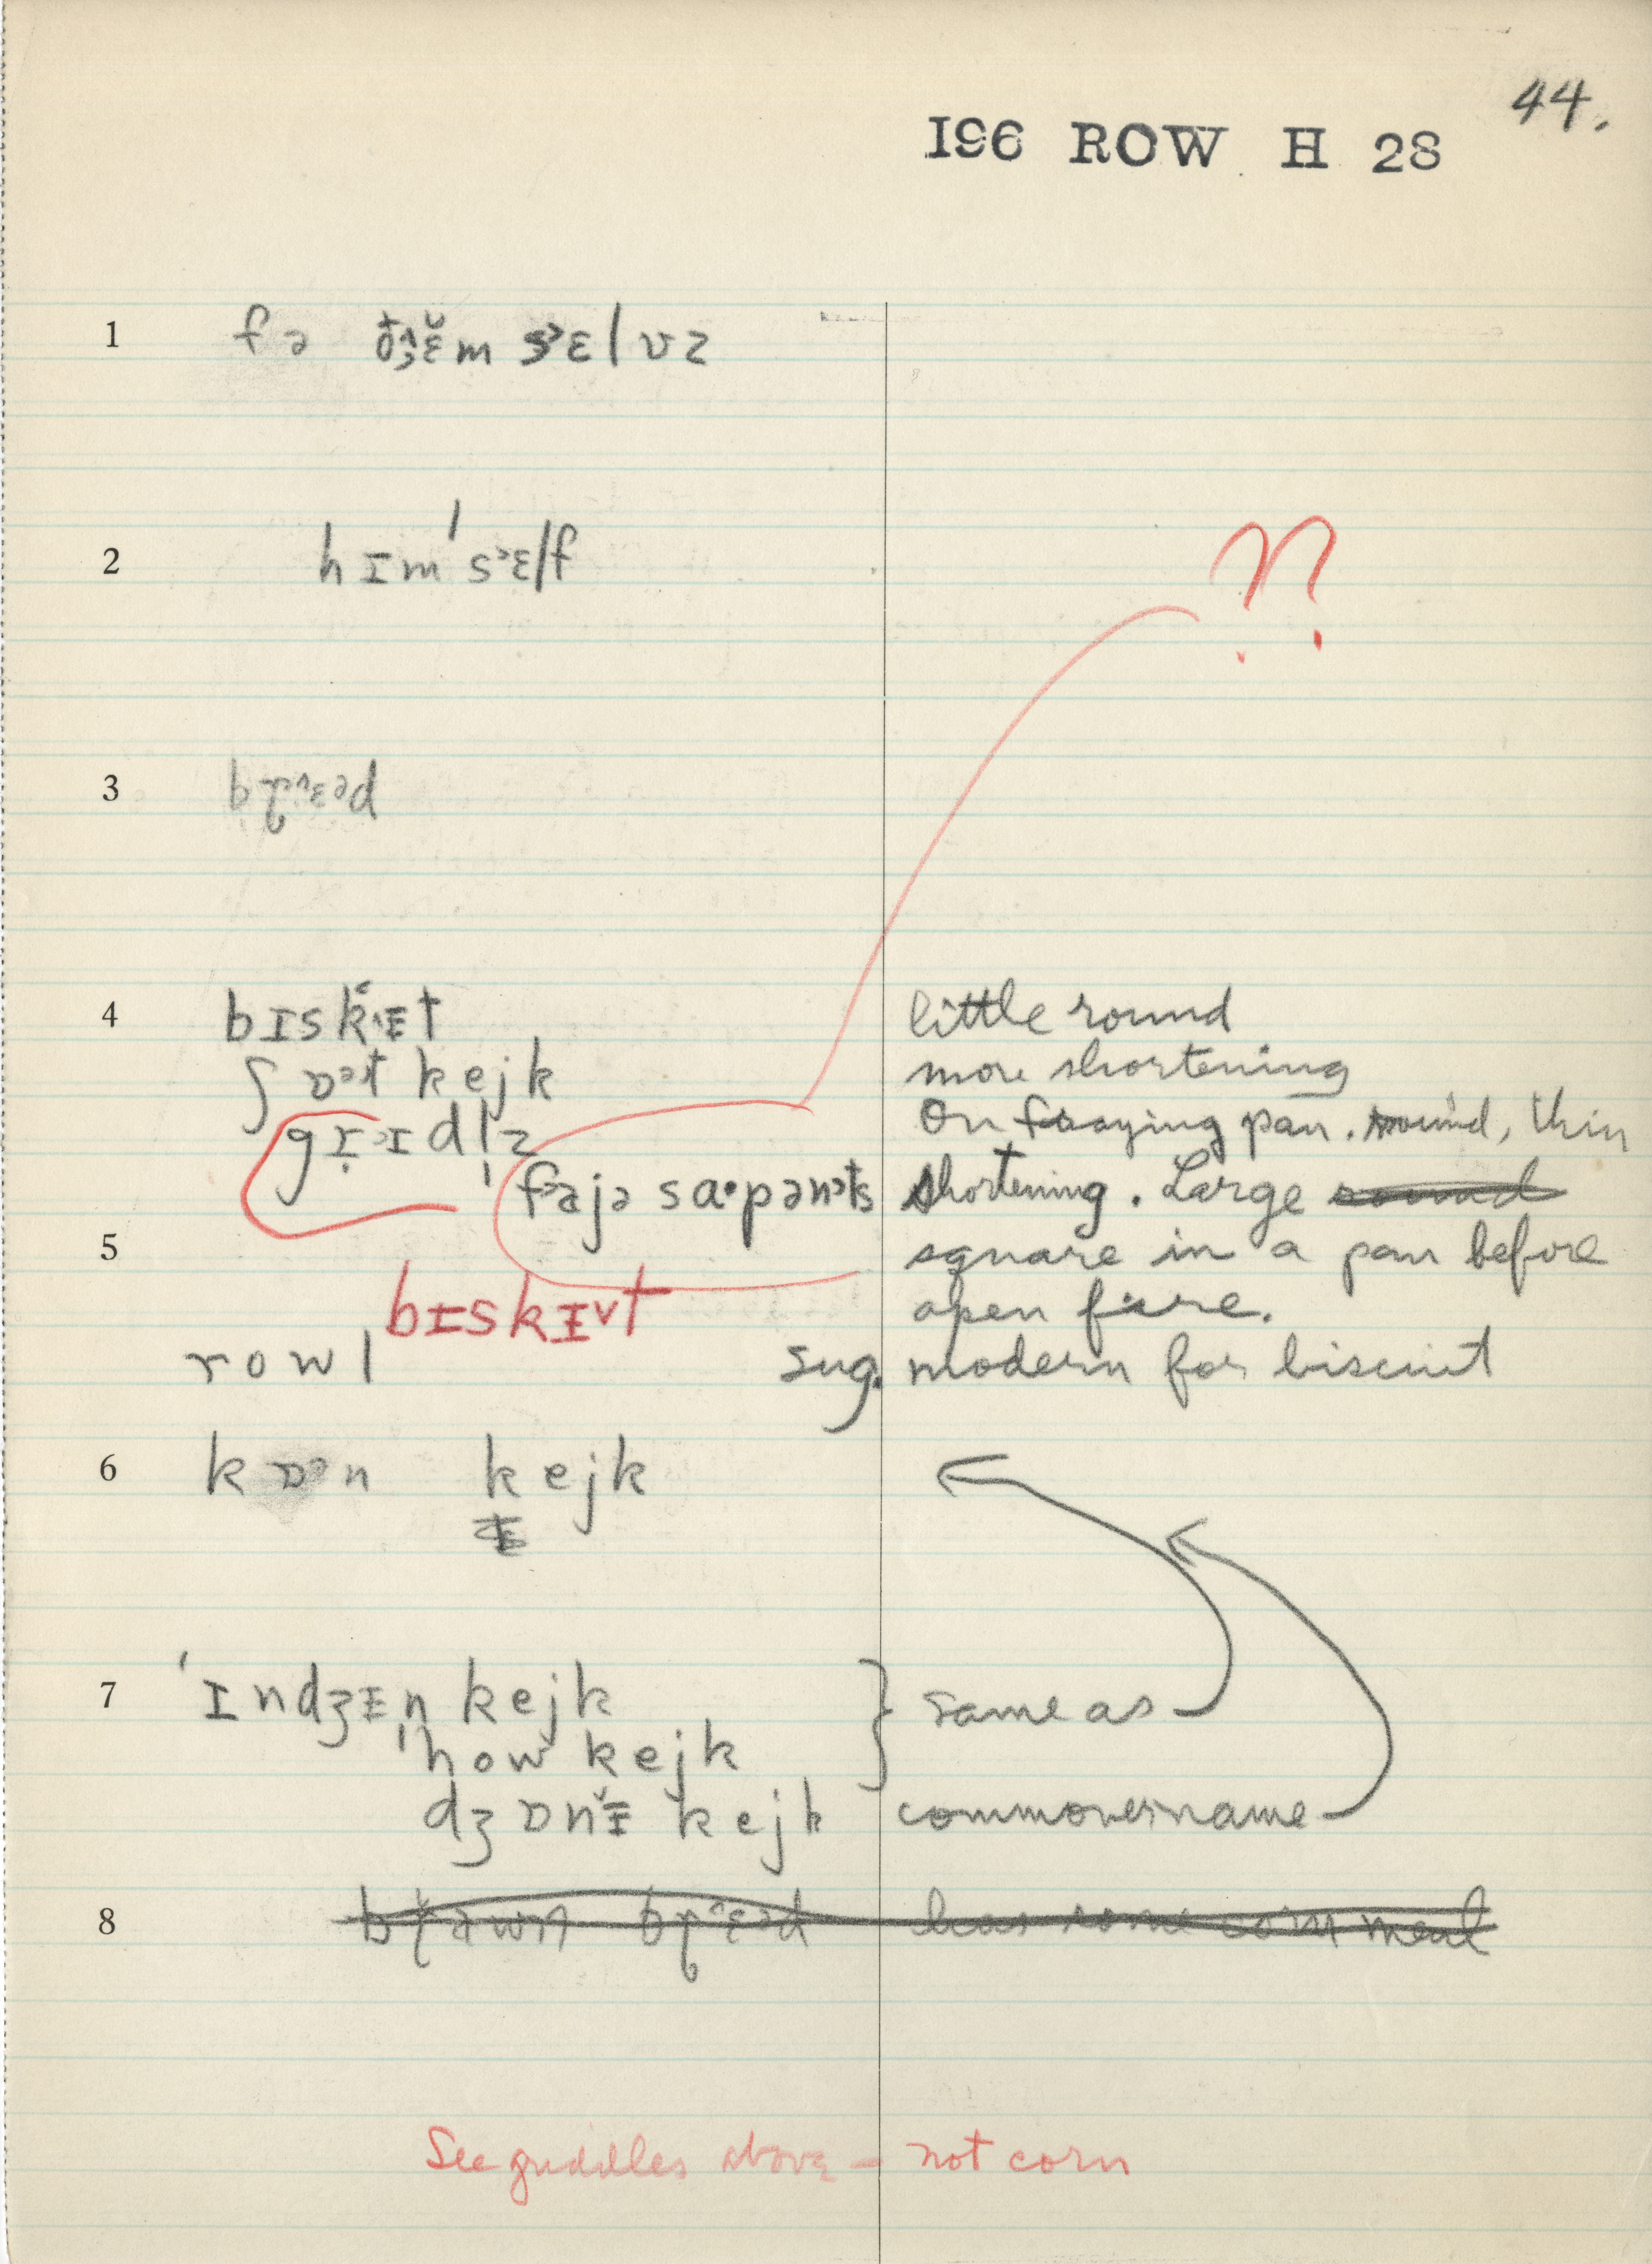 44.
196 ROW H 28
1 fə ðɛ̆m sᵊɛlvz
2 hɪm'sᵊɛlf
??
3 bɽᶺɛəd
4 bɪskᵻt little round
ʃɒət kejk more shortening
gɽɪᵊɪdl̩z On fraying pan. round, thin
fəajə sɑ·pənᵊts shortening. Large round
5 square in a pan before
bɪskᵻ˅t open fire.
rowl sug. modern for biscuit
6 kɒᵊn kejk
7 'ɪndʒᵻn kejk } same as
'how kejk
dʒɒnᵻ kejk commoner name
8 bɽawn bɽᶺɛəd has some corn meal
See griddles above – not corn